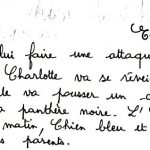 lui faire une attaqu
Charlotte va se révei
le va pousser un
panthère noire. L'
matin, Chien bleu et
s parents.